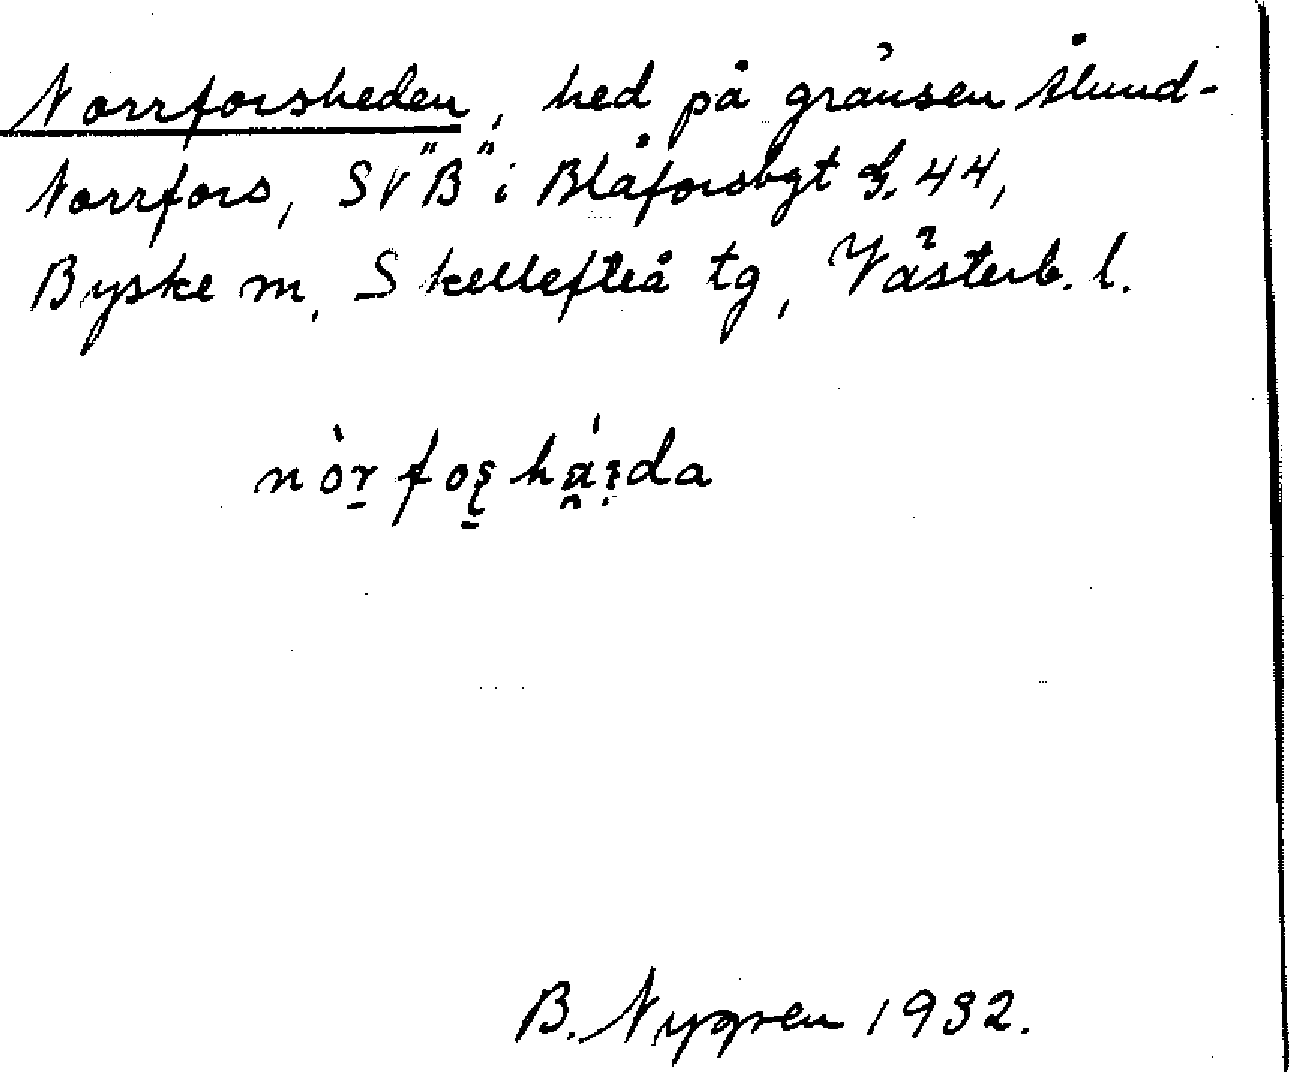 Norrforsheden, hed på gränsen Ålund-
Norrfors, SV "B" i Blåforsbgt G. 44,
Byske m, Skellefteå tg, Västerb. l.
B. Nygren 1932.